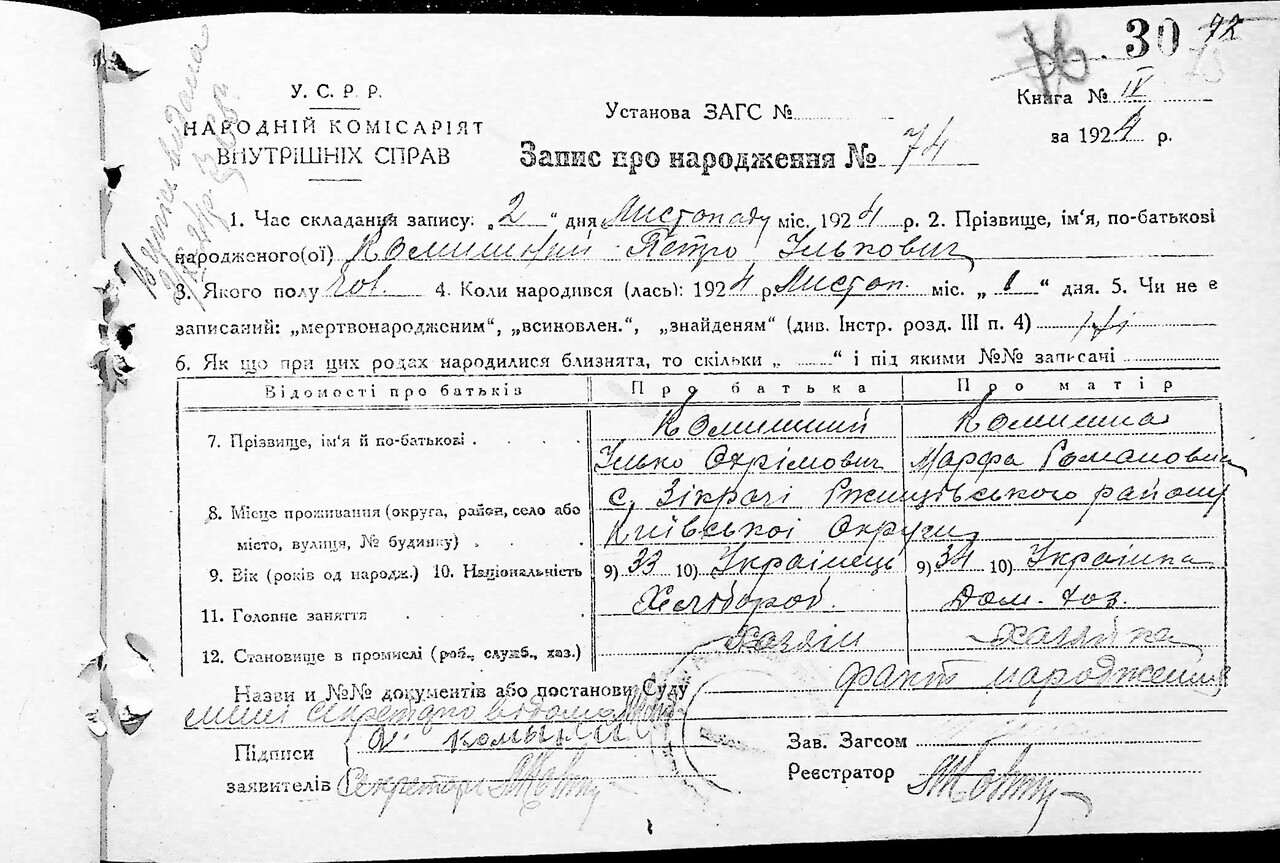 30 72
У. С. Р. Р.
НАРОДНІЙ КОМІСАРІЯТ
ВНУТРІШНІХ СПРАВ
Установа ЗАГС №
Книга № IV
за 1924 р.
Запис про народження № 74
1. Час складання запису: „2“ дня Листопаду міс. 1924 р. 2. Прізвище, ім'я, по-батькові
народженого(ої) Комишний Петро Ількович
3. Якого полу чол. 4. Коли народився (лась): 1924 р. Листоп. міс. „1“ дня. 5. Чи не є
записаний: „мертвонародженим“, „всиновлен.“, „знайденям“ (див. Інстр. розд. III п. 4) ні
6. Як що при цих родах народилися близнята, то скільки „ “ і під якими №№ записачі
Відомості про батьків Про батька Про матір
7. Прізвище, ім'я й по-батькові Комишний Комишна
Ілько Охрімович Марфа Романовна
8. Місце проживання (округа, район, село або
місто, вулиця, № будинку)
с. Зікрачі Ржищівського району
Київської Округи
9. Вік (років од народж.) 10. Національність 9) 33 10) Українець 9) 34 10) Українка
11. Головне заняття Хлібороб. Дом. хоз.
12. Становище в промислі (роб., служб., хаз.) Хазяїн Хазяйка
Назви и №№ документів або постанови Суду факт народження
мені секретарю відома
Підписи
заявителів Секретарь
Зав. Загсом
Реєстратор